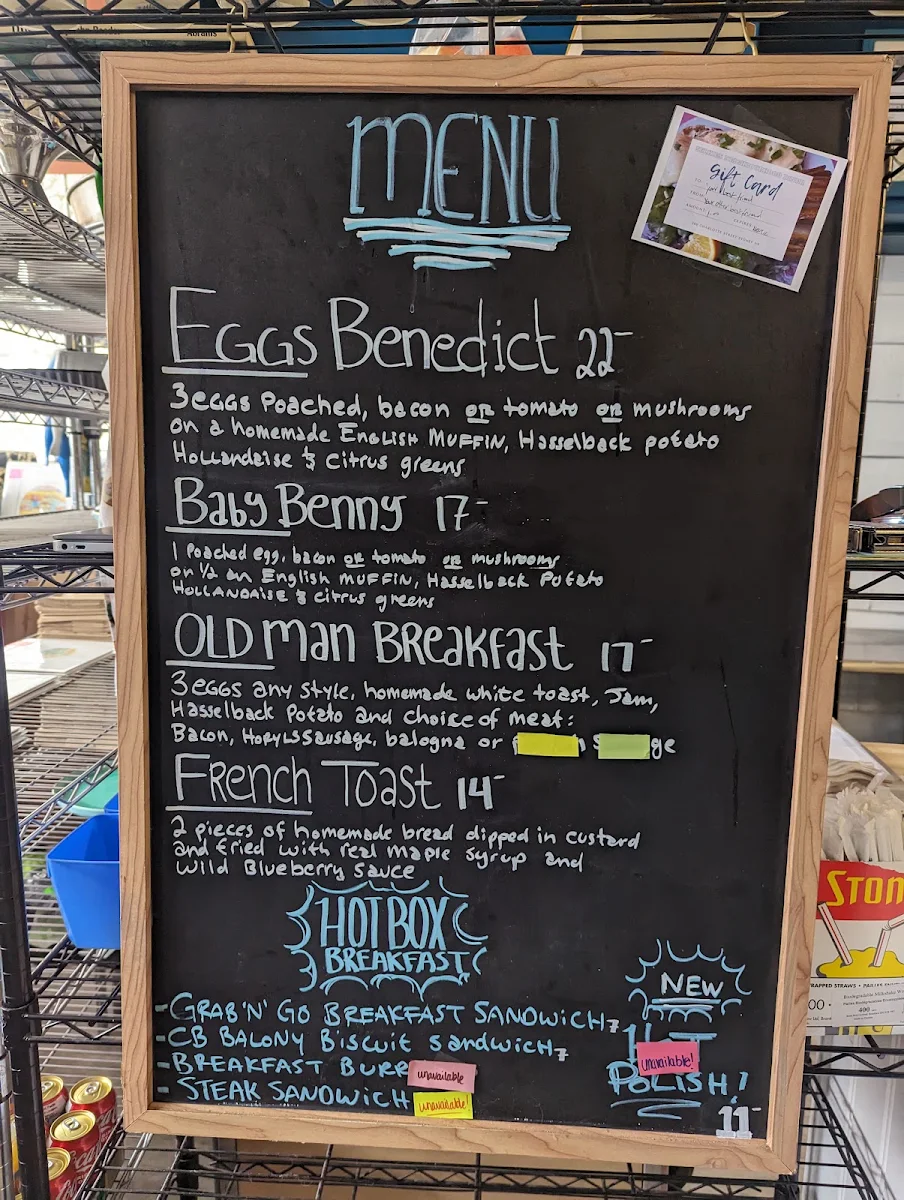 Abrams
MENU
Gift Card
Eggs Benedict 22-
3 eggs Poached, bacon or tomato or mushrooms
on a homemade English Muffin, Hasselback potato
Hollandaise & citrus greens
Baby Benny 17-
1 Poached egg, bacon or tomato or mushrooms
on 1/2 an English muffin, Hasselback Potato
HOLLANDAISE & citrus greens
OLD Man Breakfast 17-
3 eggs any style, homemade white toast, Jam,
Hasselback Potato and choice of meat:
Bacon, Horyls Sausage, balogna or
ge
French Toast 14-
2 pieces of homemade bread dipped in custard
and fried with real maple syrup and
wild Blueberry sauce
HOT BOX
BREAKFAST
- GRAB 'N' GO BREAKFAST SANDWICH 7
- CB BALONY Biscuit Sandwich 7
- BREAKFAST BURR
unavailable
- STEAK SANDWICH
unavailable!
NEW
unavailable!
POLISH!
11-
STON
WRAPPED STRAWS
400